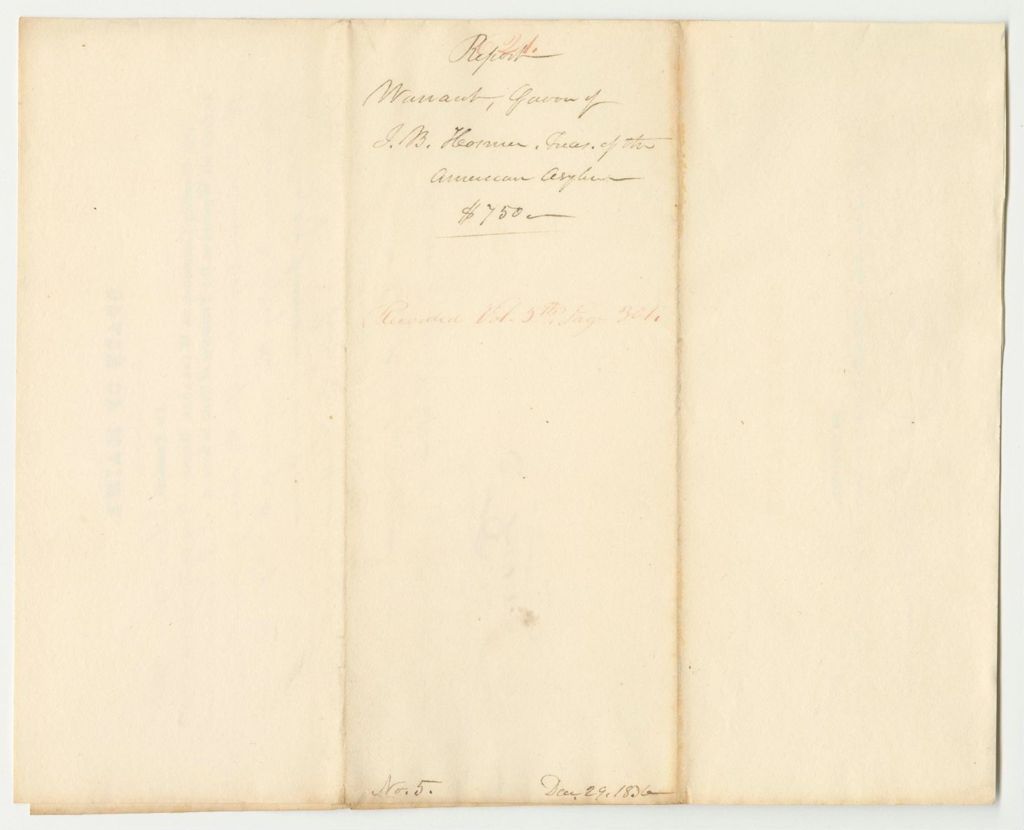 Report
Warrant, favor of
J. B. Hosmer, Treas. of the
American Asylum
$750
Recorded Vol. 5th, Page 361.
No. 5.
Dec. 29. 1836
STATE OF MAINE